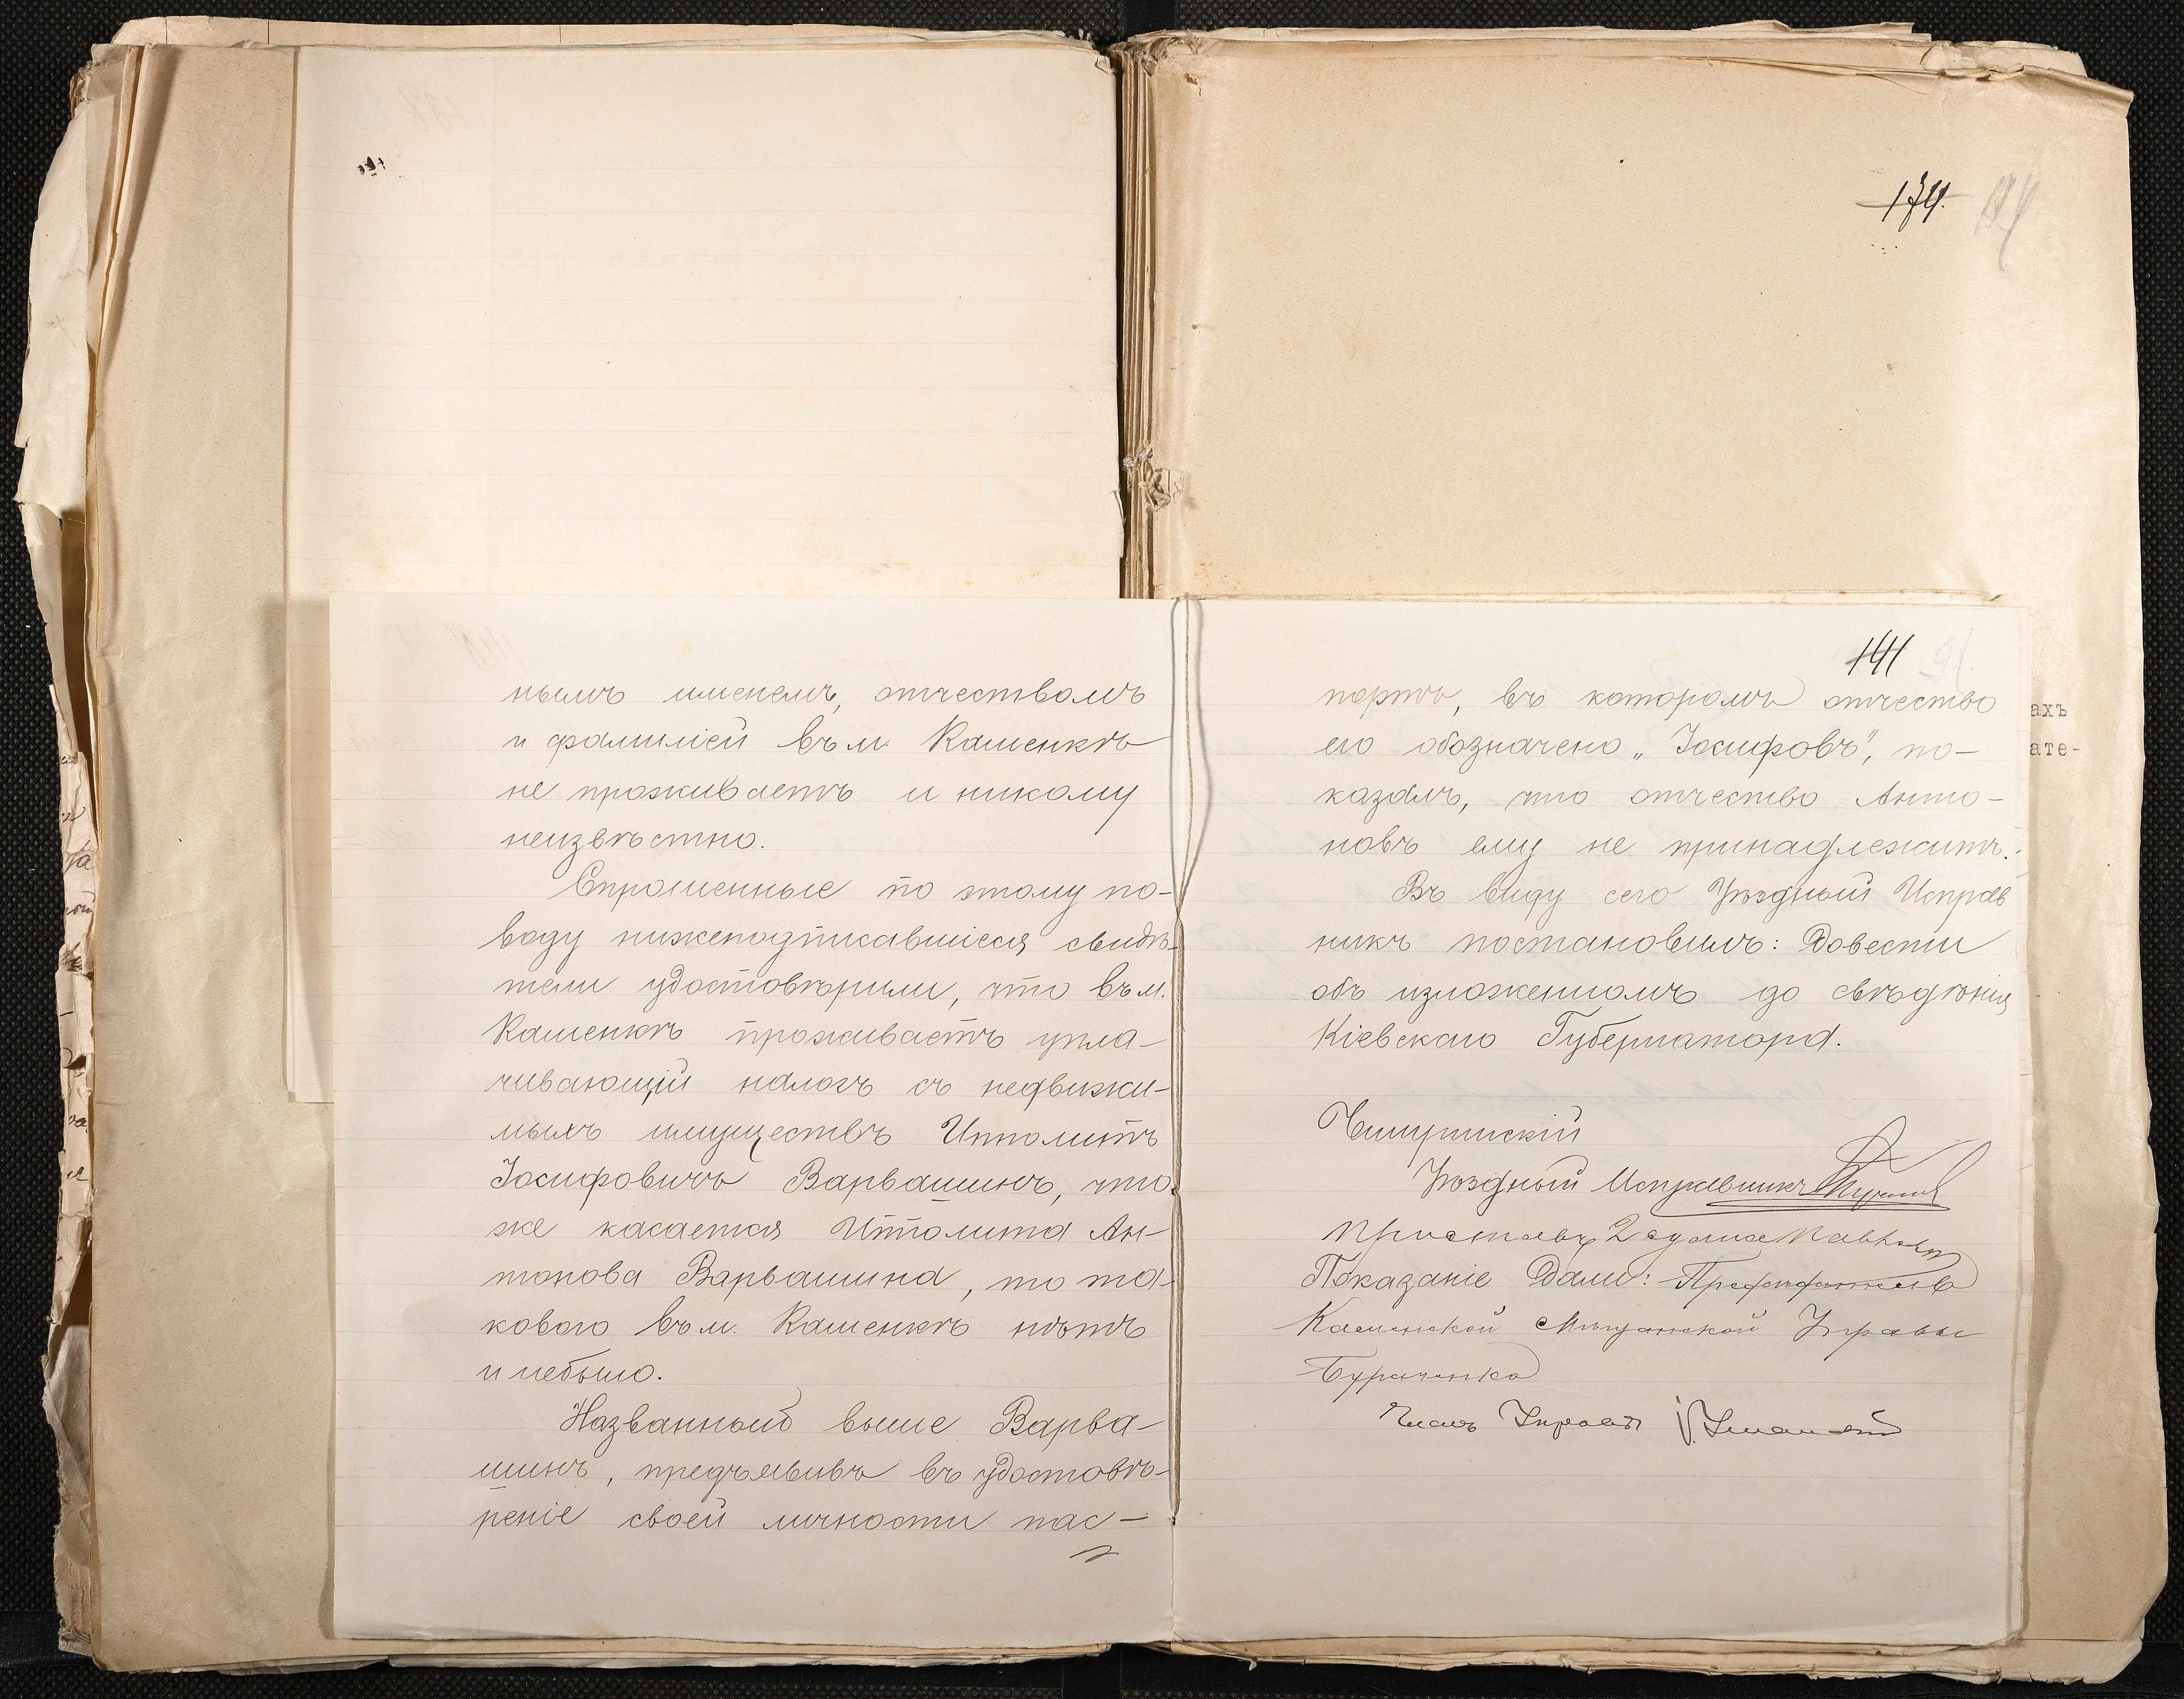 174.
нымъ именемъ, отчествомъ
и фамиліей въ м. Каменкѣ
не проживаетъ и никому
неизвѣстно.
Спрошенные по этому по-
воду нижеподписавшіеся свидѣ-
тели удостовѣрили, что въ м.
Каменкѣ проживаетъ упла-
чивающій налогъ съ недвижи-
мыхъ имуществъ Ипполитъ
Іосифовичъ Варвашинъ, что
же касается Ипполита Ан-
тонова Варвашина, то та-
кового въ м. Каменкѣ нѣтъ
и небыло.
Названный выше Варва-
шинъ, предъявивъ въ удостовѣ-
реніе своей личности пас-
141
портъ, въ которомъ отчество
его обозначено „Іосифовъ", по-
казалъ, что отчество Анто-
новъ ему не принадлежитъ.
Въ виду сего Уѣздный Исправ
никъ постановилъ: Довести
объ изложенномъ до свѣдѣнія
Кіевскаго Губернатора.
Чигиринскій
Уѣздный Исправникъ
Приставъ 2 стана
Показаніе дали:
Каменской Мѣщанской Управы
Бураченко
Членъ Управы
ахъ
ате-